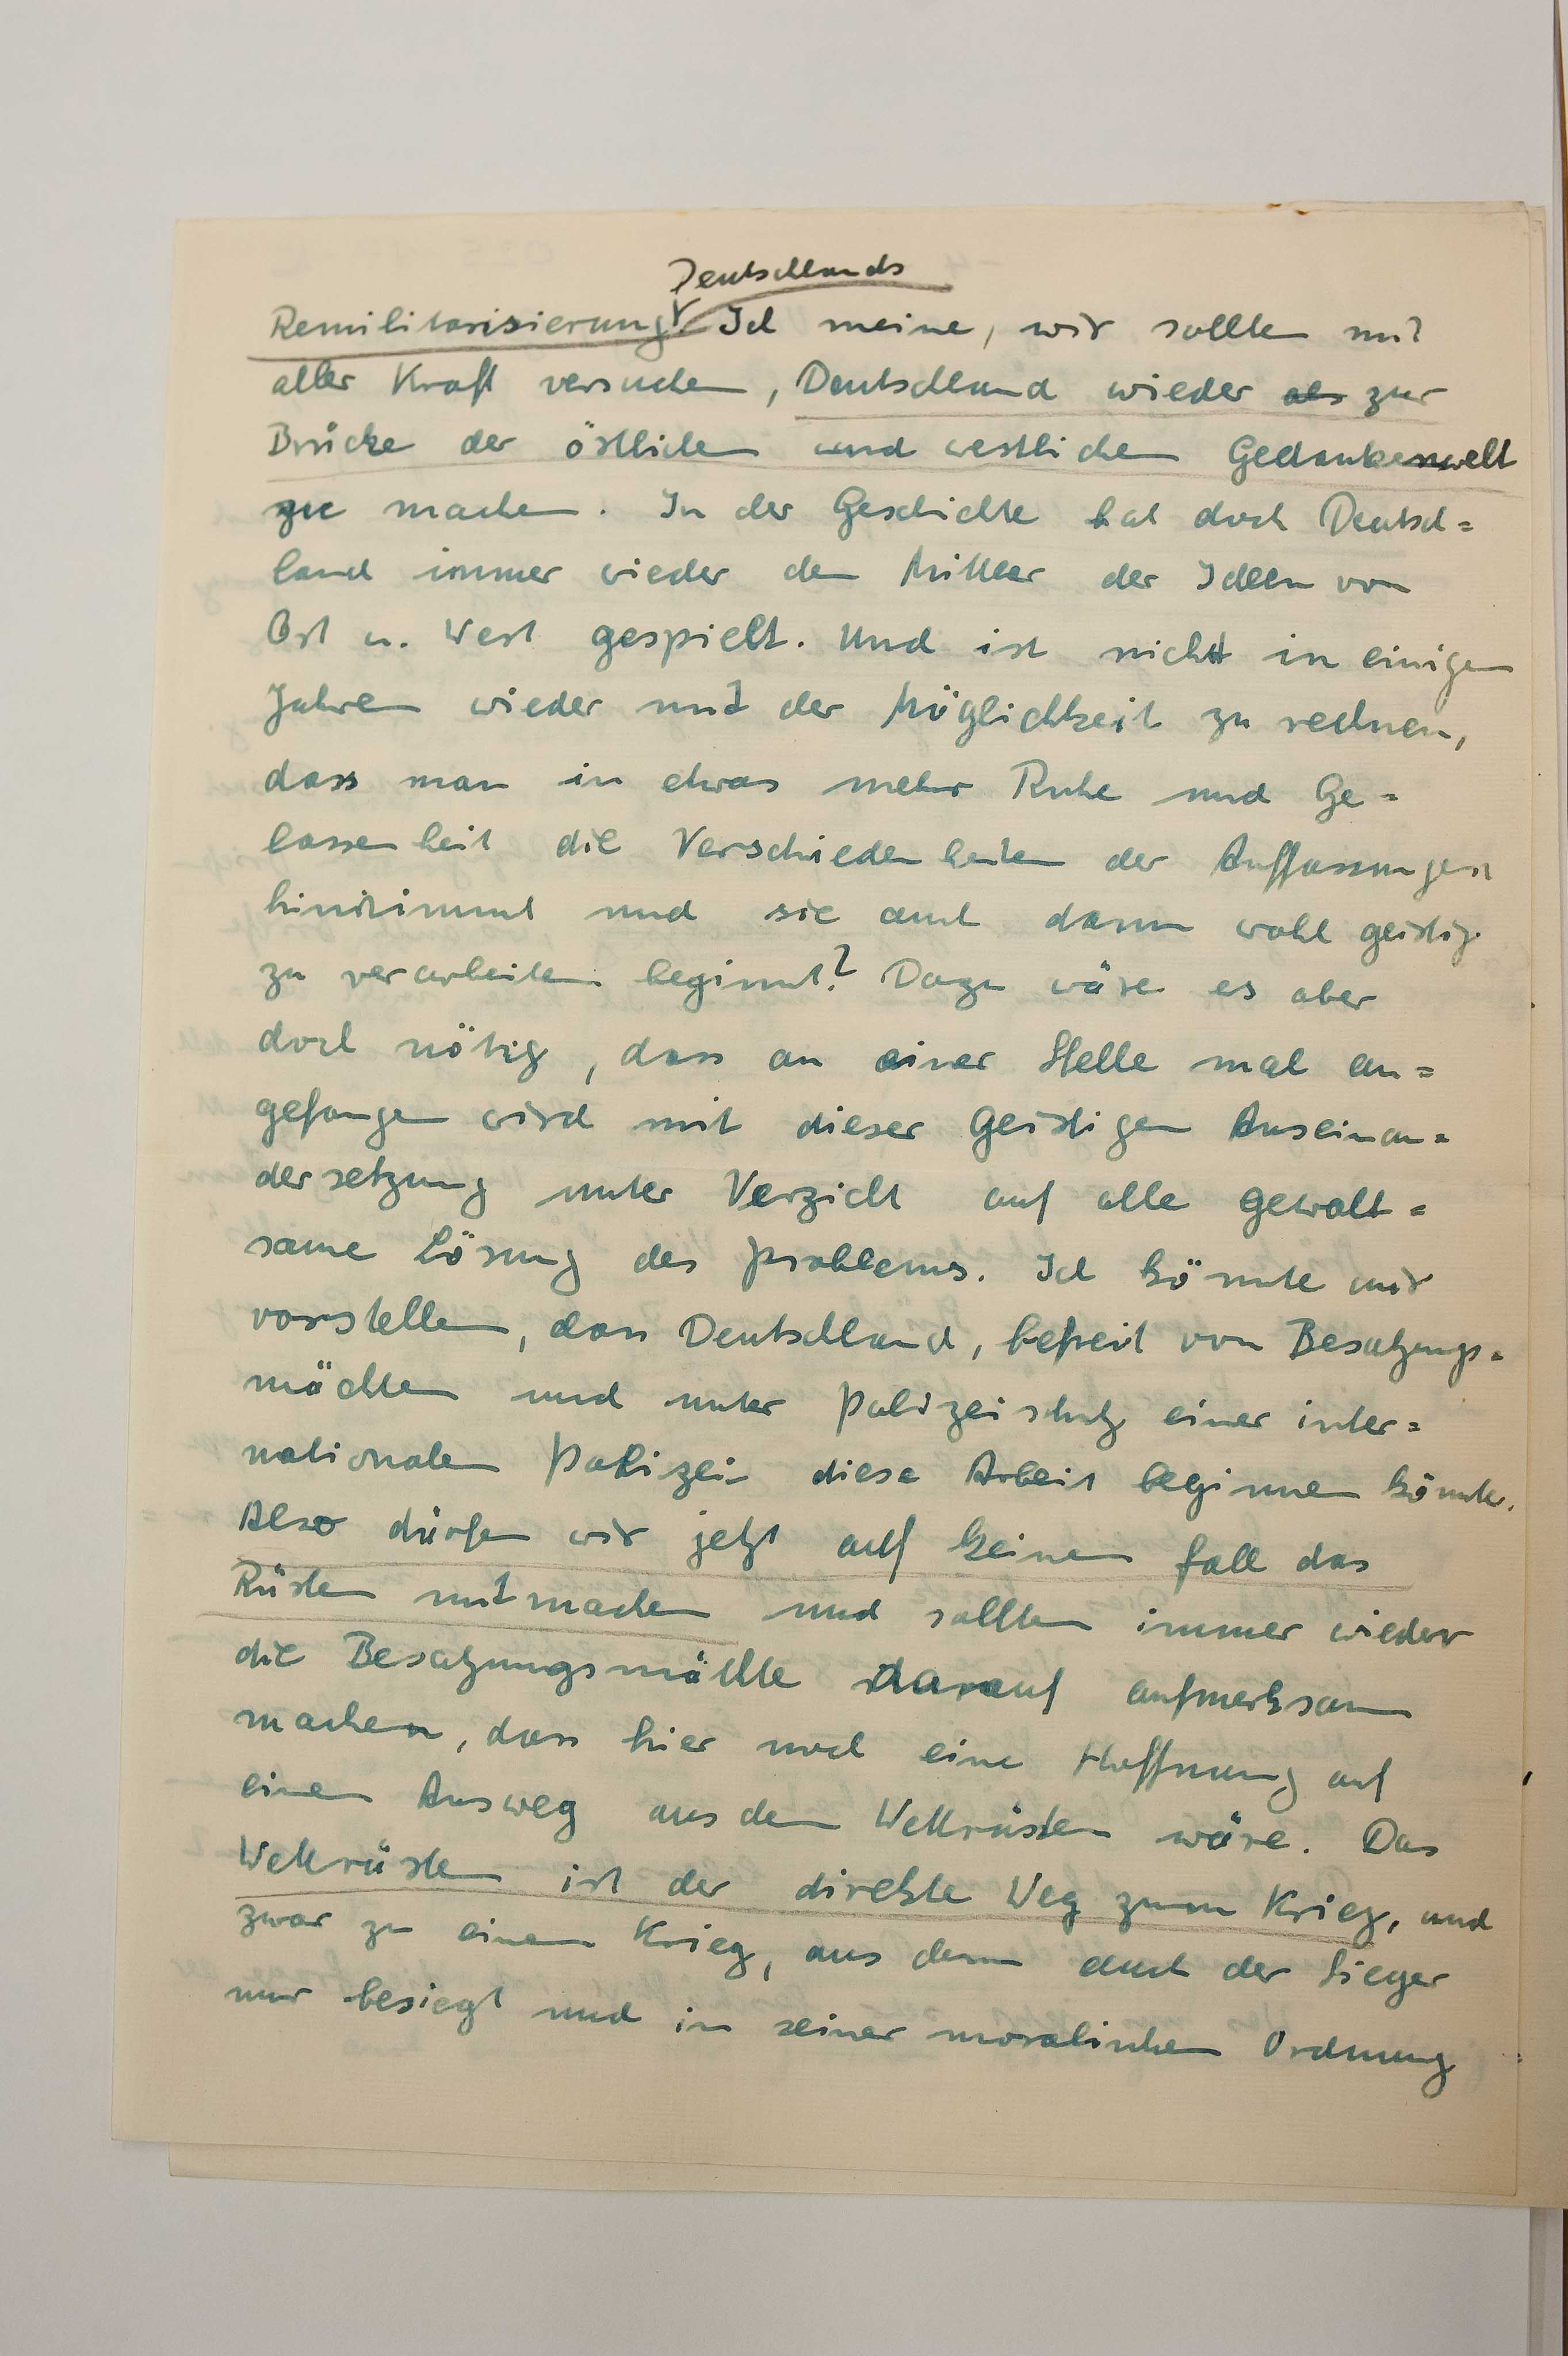 Deutschlands
Remilitarisierung. Ich meine, wir sollten mit
aller Kraft versuchen, Deutschland wieder als zur
Brücke der östlichen und westlichen Gedankenwelt
zu machen. In der Geschichte hat doch Deutsch=
land immer wieder den Mittler der Ideen von
Ost u. West gespielt. Und ist nicht in einigen
Jahren wieder mit der Möglichkeit zu rechnen,
dass man in etwas mehr Ruhe und Ge=
lassenheit die Verschiedenheiten der Auffassungen
hinnimmt und sie auch dann wohl geistig
zu verarbeiten beginnt? Dazu wäre es aber
doch nötig, dass an einer Stelle mal an=
gefangen wird mit dieser geistigen Auseinan=
dersetzung unter Verzicht auf alle gewalt=
same Lösung des Problems. Ich könnte mir
vorstellen, dass Deutschland, befreit von Besatzungs=
mächten und unter Polizeischutz einer inter=
nationalen Polizei diese Arbeit beginnen könnte.
Also dürfen wir jetzt auf keinen Fall das
Rüsten mitmachen und sollten immer wieder
die Besatzungsmächte darauf aufmerksam
machen, dass hier noch eine Hoffnung auf
einen Ausweg aus dem Wettrüsten wäre. Das
Wettrüsten ist der direkte Weg zum Krieg, und
zwar zu einem Krieg, aus dem auch der Sieger
nur besiegt und in seiner moralischen Ordnung